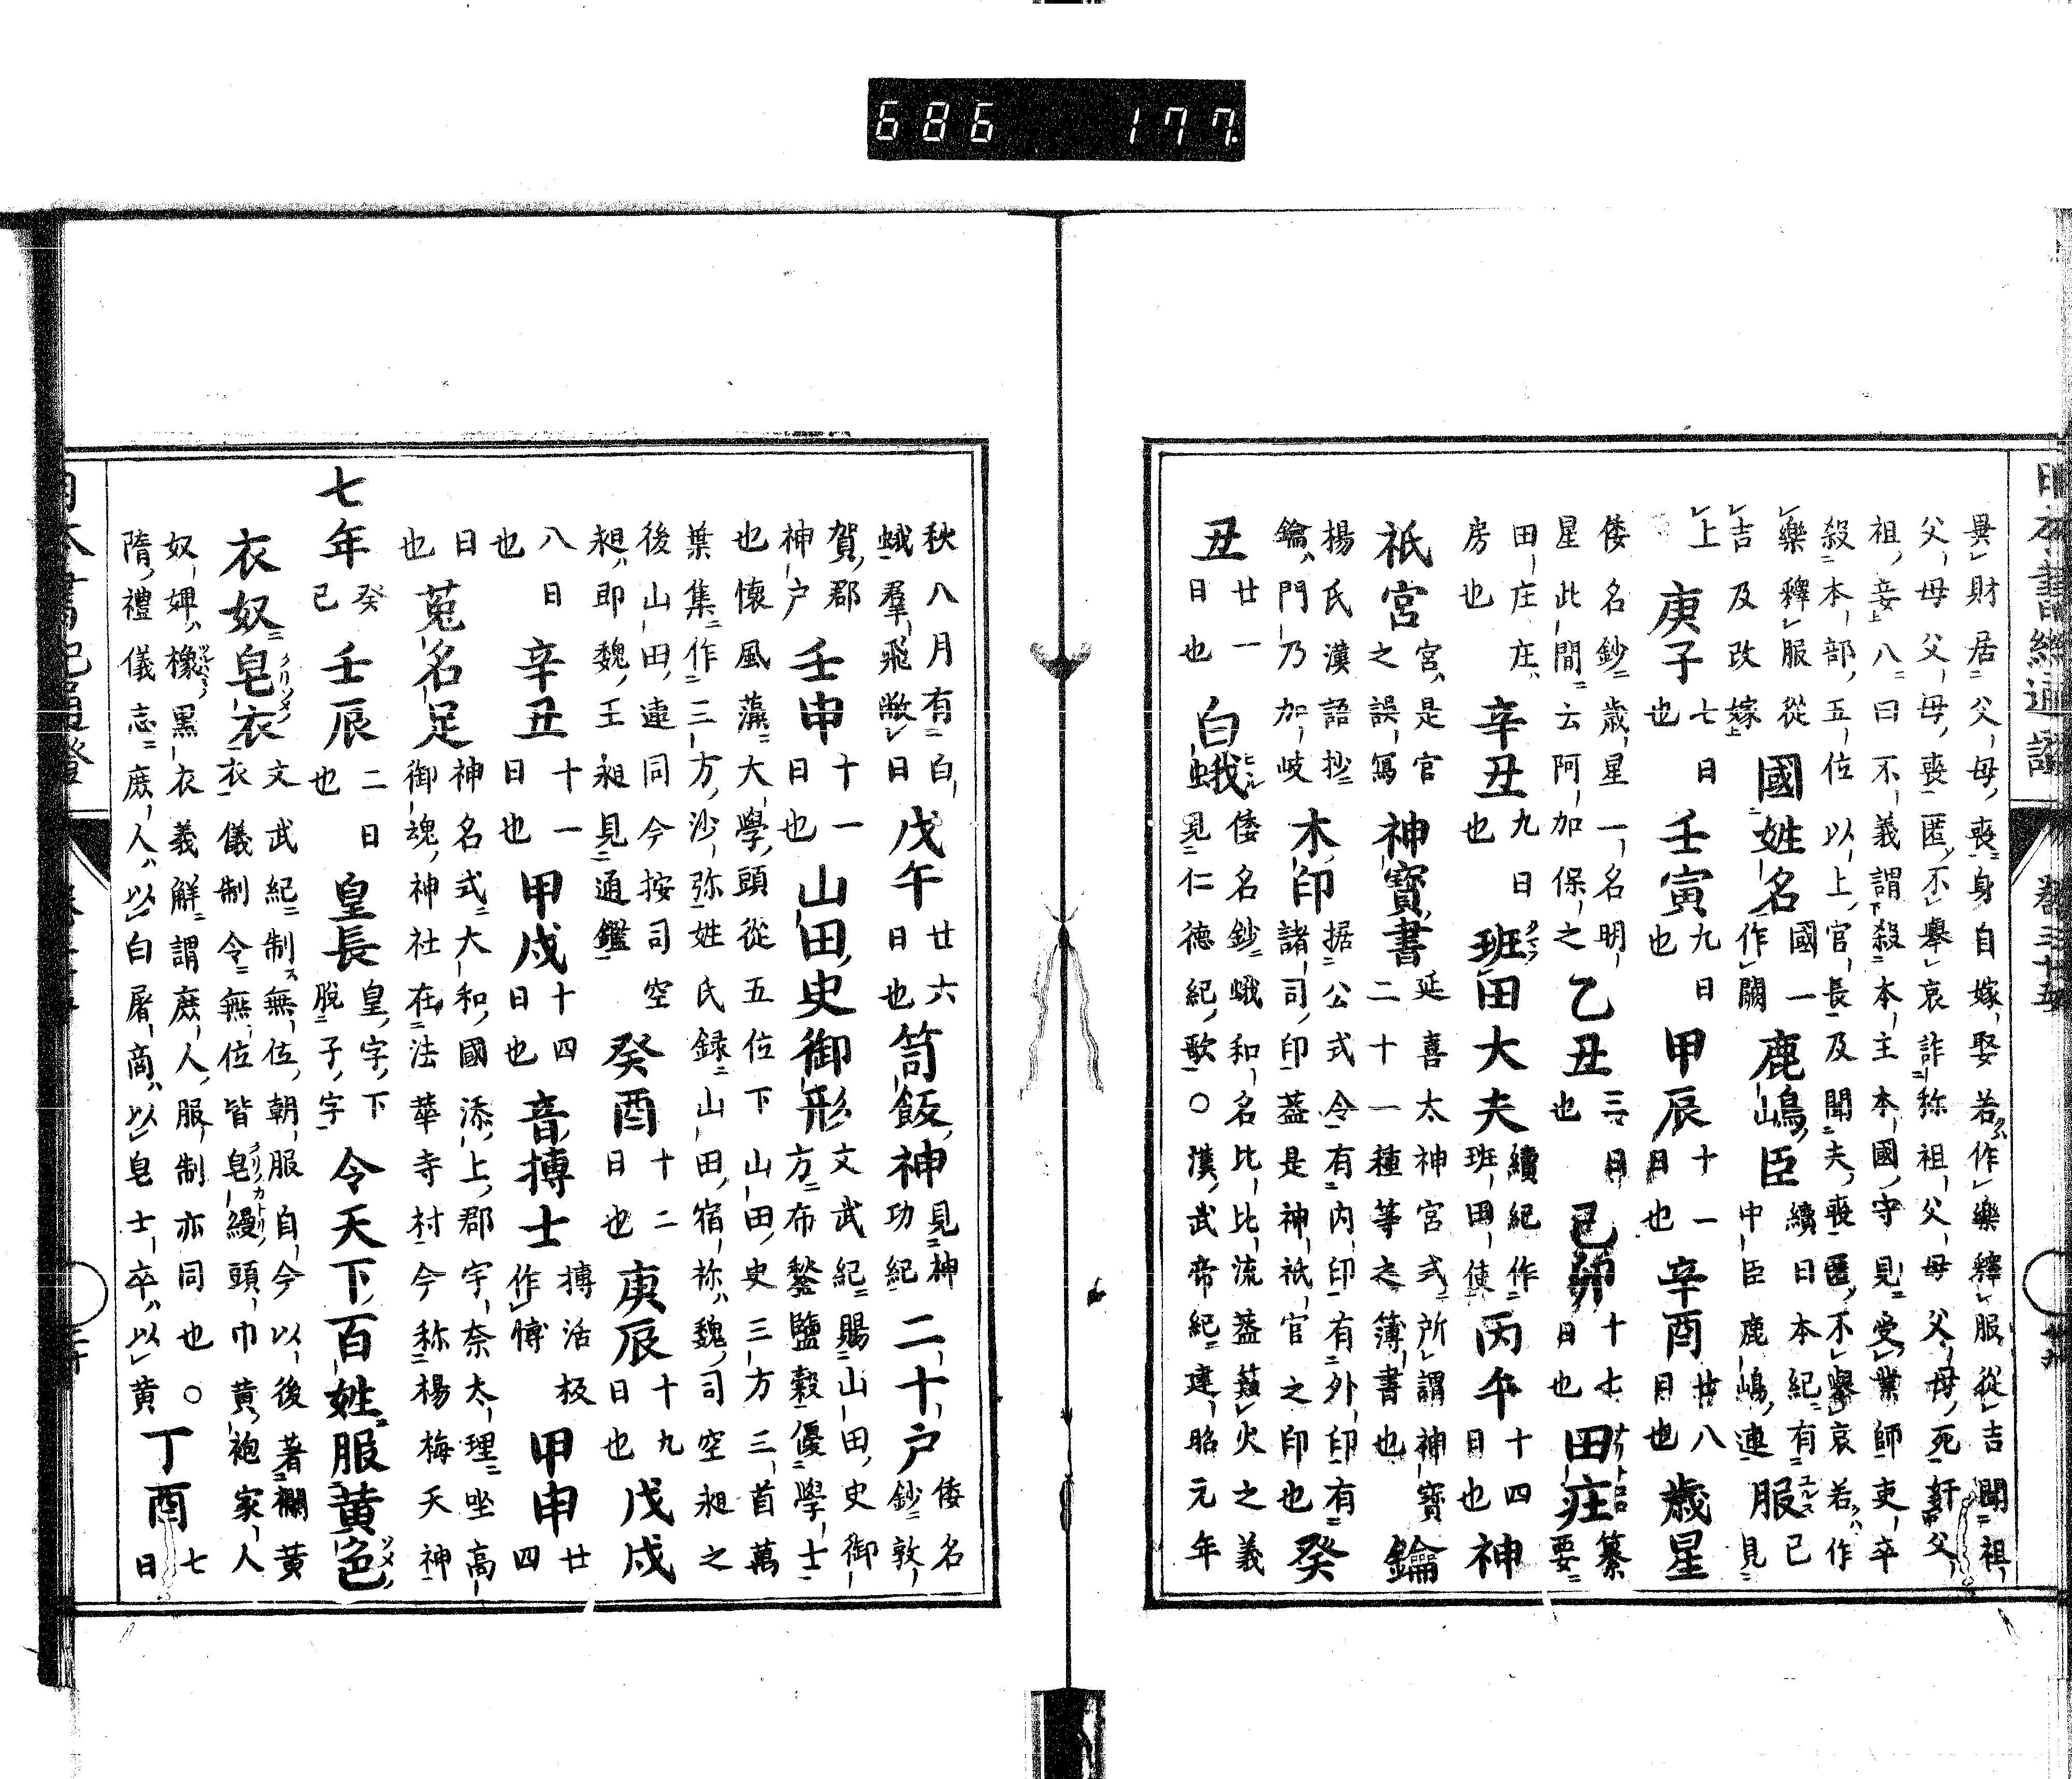 異財居父母喪身自嫁娶若作樂釋服從吉聞祖
父母父母喪匿不擧哀詐称祖父母父母死奸父
祖妾八曰不義謂殺本主本國守見受業師吏卒
殺本部五位以上官長及聞夫喪匿不擧哀若作
樂釋服從吉及改嫁上 國姓名國一作關 鹿嶋臣續日本紀有中臣鹿嶋連 服已見
上 庚子七日也 壬寅九日也 甲辰十一日也 辛酉廿八日也 歳星
倭名鈔歳星一名明星此間云阿加保之 乙丑三日也 己卯十七日也 田莊纂要
田庄庄房也 辛丑九日也 班田大夫續紀作班田使 丙午十四日也 神
祇宮宮是官之誤寫 神寶書延喜太神宮式所謂神寶二十一種等之簿書也 鑰
楊氏漢語抄鑰門乃加岐 木印据公式令有内印有外印有諸司印蓋是神祇官之印也 癸
丑廿一日也 白蛾倭名鈔蛾和名比比流蓋 火之義見仁德紀歌○漢武帝紀建昭元年
秋八月有白蛾羣飛敝日 戊午廿六日也 笥飯神見神功紀 二十戸倭名鈔敦
賀郡神戸 壬申十一日也 山田史御形文武紀賜山田史御方布鍫鹽穀優學士
也懷風藻大學頭從五位下山田史三方三首萬
葉集作三方沙弥姓氏録山田宿祢魏司空昶之
後山田連同今按司空昶即魏王昶見通鑑 癸酉十二日也 庚辰十九日也 戊戌
八日也 辛丑十一日也 甲戌十四日也 音搏士搏活板作博 甲申廿四
日也 菟名足神名式大和國添上郡宇奈太理坐高御魂神社在法華寺村今称楊梅天神
七年癸己 壬辰二日也 皇長皇字下脱子字 令天下百姓服黄色
衣奴皂衣文武紀制無位朝服自今以後著襴黄衣儀制令無位皆皂縵頭巾黄袍家人
奴婢橡黒衣義解謂庶人服制亦同也○
隋禮儀志庶人以白屠商以皂士卒以黄 丁酉七日